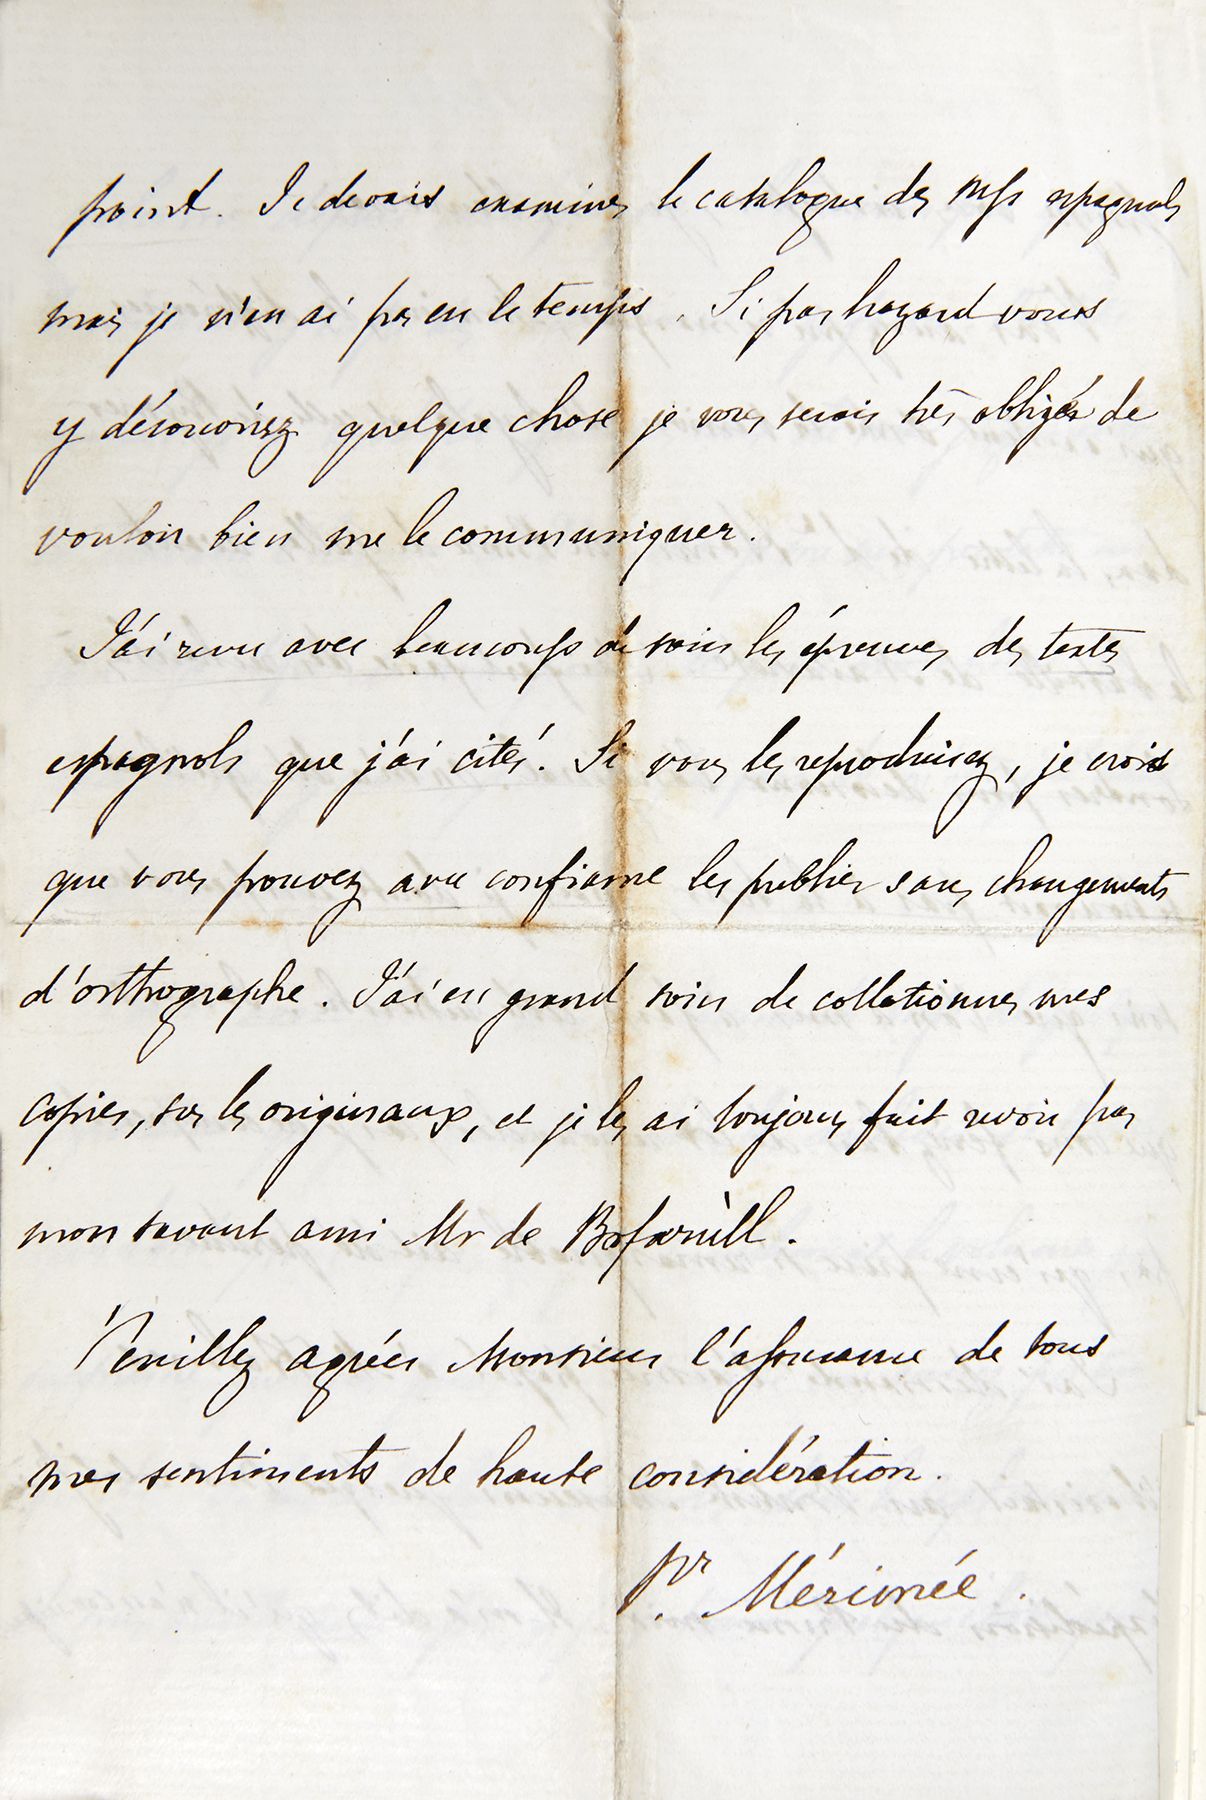 point. Je devais examiner le catalogue des mss espagnols
mais je n'en ai pas eu le temps. Si par hazard vous
y découvriez quelque chose je vous serais très obligé de
vouloir bien me le communiquer.
J'ai revu avec beaucoup de soin les épreuves des textes
espagnols que j'ai cités. Si vous les reproduisez, je crois
que vous pouvez avec confiance les publier sans changements
d'orthographe. J'ai eu grand soin de collationner mes
copies, sur les originaux, et je les ai toujours fait revoir par
mon savant ami Mr de Bofarull.
Veuillez agréer Monsieur l'assurance de tous
mes sentiments de haute considération.
Pr Mérimée.